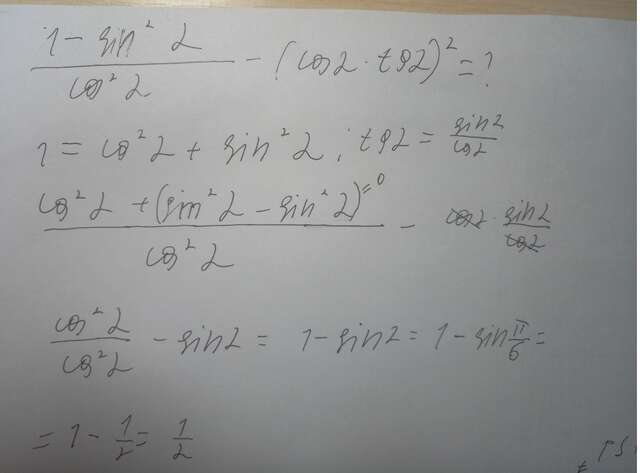 (1 - sin² α) / cos² α - (cos α · tg α)² = ?
1 = cos² α + sin² α ; tg α = sin α / cos α
(cos² α + (sin² α - sin² α)^{=0}) / cos² α - cos α · sin α / cos α
cos² α / cos² α - sin α = 1 - sin α = 1 - sin π/6 =
= 1 - 1/2 = 1/2